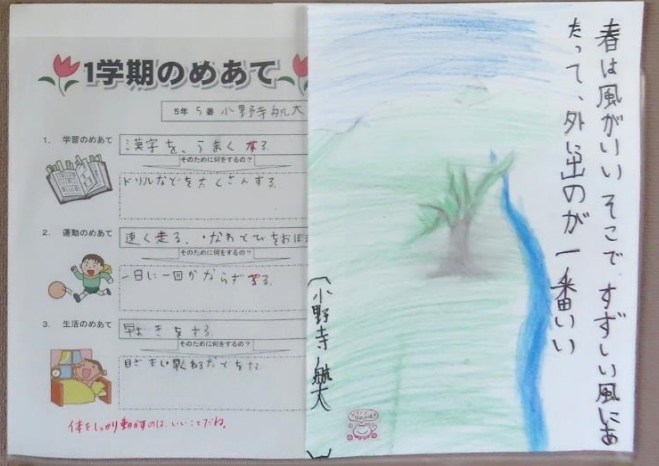 1学期のめあて
5年 5番 小野寺航大
1. 学習のめあて
漢字を、うまくなる
そのために何をするの?
ドリルなどをたくさんする。
2. 運動のめあて
速く走る。・なわとびをおぼ
そのために何をするの?
一日に一回かならずする。
3. 生活のめあて
早おきをする
そのために何をするの?
体をしっかり動かすのは、いいことだね。
春は風がいい そこで、すずしい風にあ
たって、外に出のが 一番いい
(小野寺 航大)